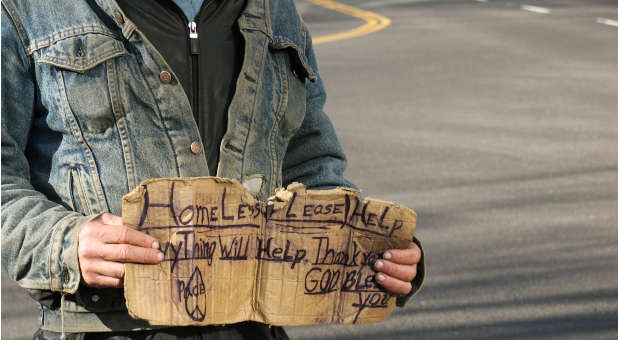 HOMELESS PLEASE HELP
ANYTHING WILL HELP. THANK YOU
GOD BLESS
YOU
PEACE